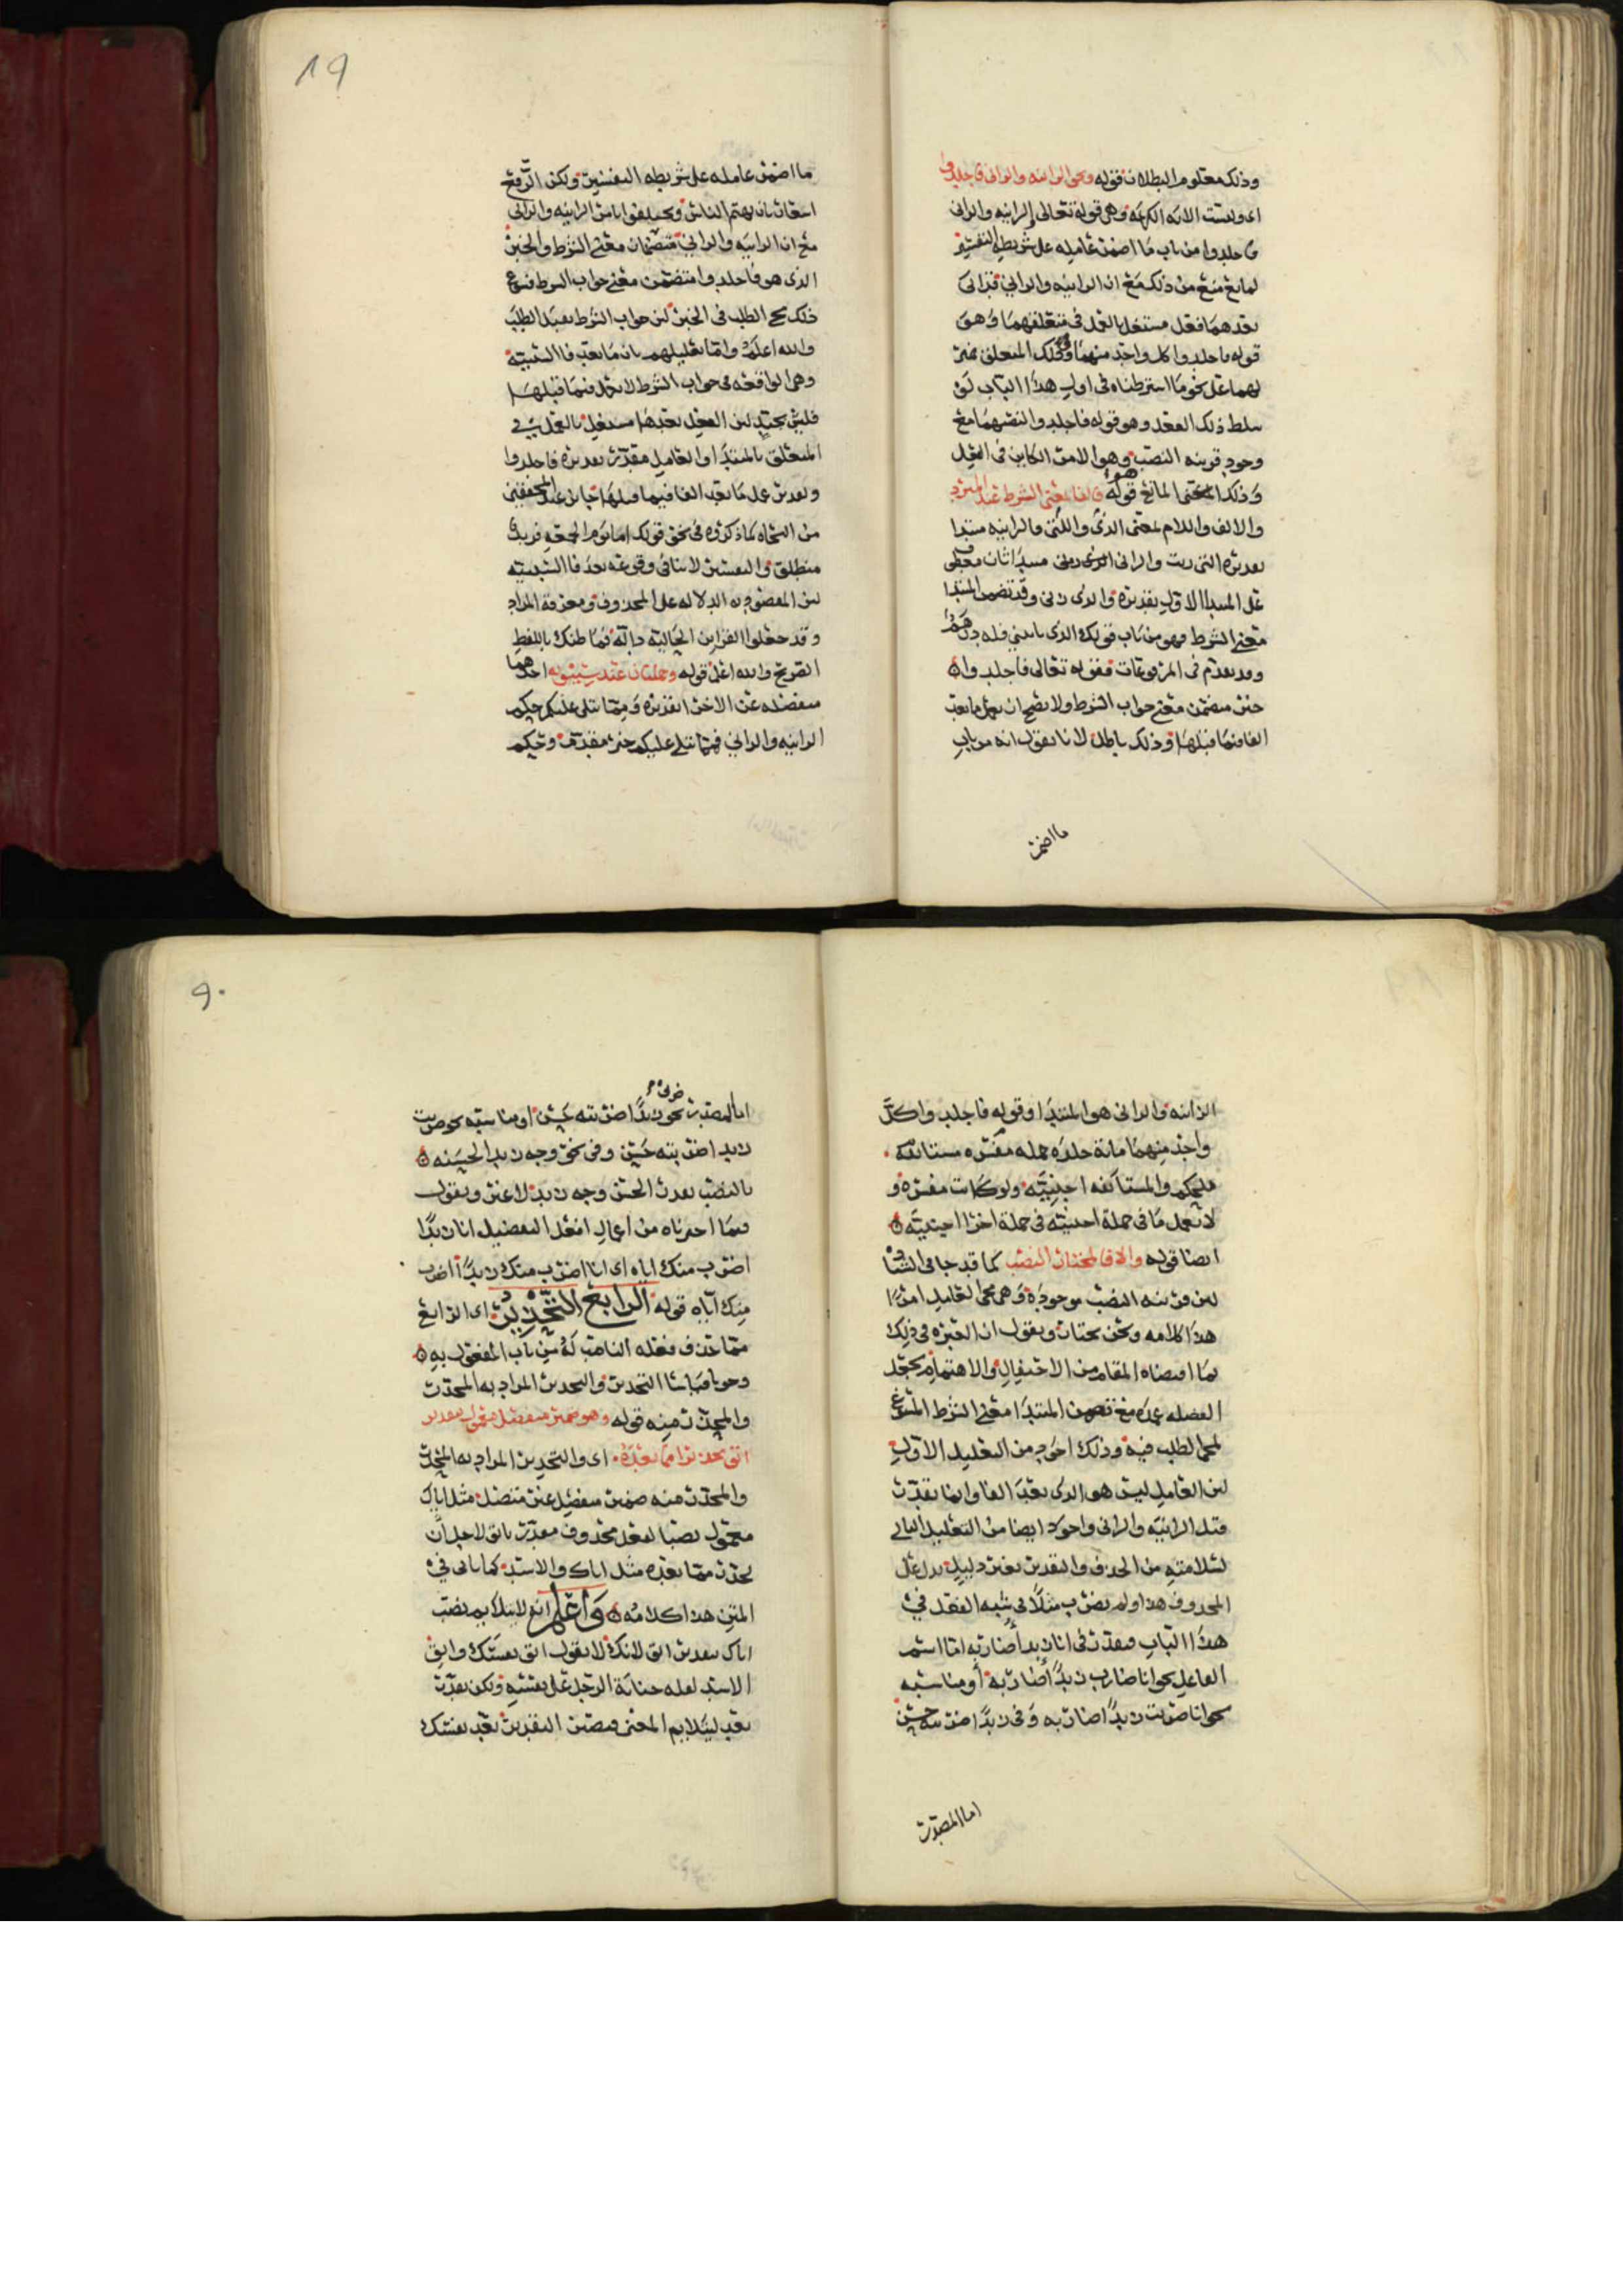 وذلك معلوم البطلان قوله ونحو الزانية والزاني فاجلدوا
اي وليست الاية الكريمة وهي قوله تعالى الزانية والزاني
فاجلدوا من باب ما اضمر عامله على شريطة التفسير
لمانع منع من ذلك مع ان الزانية والزاني قد اتى
بعدهما فعل مشتغل بالعمل في متعلقهما وهو
قوله فاجلدوا كل واحد منهما وذلك المتعلق
لهما على نحو ما اشترطناه في اول هذا الباب لو
سلط ذلك الفعل وهو قوله فاجلدوا لنصبهما مع
وجود قرينة النصب وهو الامر الكاين في الفعل
وذلك المعنى المانع هو قوله فالفا بمعنى الشرط عند المبرد
والالف واللام بمعنى الذي والتي فالزانية مبتدا
تقديره التي زنت والزاني الذي زنى مبتدا ثان معطوف
على المبتدا الاول تقديره والذي زنى وقد تضمن المبتدا
معنى الشرط فهو من باب قولك الذي ياتيني فله درهم
وقد تقدم في المرفوعات فقوله تعالى فاجلدوا
خبر متضمن معنى جواب الشرط ولا يصح ان يعمل ما بعد
الفا فيما قبلها وذلك باطل لانا نقول انه من باب
ما اضمر
٨٩
ما اضمر عامله على شريطة التفسير ولكن الرفع
اشعار بان يهتم الناس ويحتفلوا بامر الزانية والزاني
مع ان الزانية والزاني متضمنان معنى الشرط والخبر
الذي هو فاجلدوا متضمن معنى جواب الشرط فسوغ
ذلك مجي الطلب في الخبر لان جواب الشرط يقبل الطلب
والله اعلم واما تعليلهم بان ما بعد فا السببية
وهي الواقعة في جواب الشرط لا يعمل فيما قبلها
فليس بجيد لان الفعل بعدها مشتغل بالعمل في
المتعلق بالمبتدا والعامل مقدر تقديره فاجلدوا
وتقدير عمل ما بعد الفا فيما قبلها جايز عند المحققين
من النحاه كما ذكروه في نحو قولك اما يوم الجمعة فزيد
منطلق والتفسير لا ينافي وقوعه بعد فا السببية
لان المقصود به الدلاله على المحذوف ومعرفة المراد
وقد جعلوا القراين الحالية دالة فما ظنك باللفظ
الصريح والله اعلم قوله وجملتان عند سيبويه احدهما
منفصله عن الاخرى تقديره ومما يتلى عليكم حكم
الزانية والزاني فمما يتلى عليكم خبر مقدم وحكم
الزانية والزاني هو المبتدا وقوله فاجلدوا كل
واحد منهما مائة جلدة جملة مفسره مستانفه
للحكم والمستانفه اجنبية ولو كانت مفسره و
لا يعمل ما في جملة اجنبية في جملة اخرى اجنبية
ايضا قوله والا فالمختار النصب كما قد جا في الشاذ
لان قرينة النصب موجودة وهي مجي العامل امرا
هذا كلامه ونحن نختار ونقول ان العبره في ذلك
بما اقتضاه المقام من الاحتفال والاهتمام بجعل
الفضله عمده مع تضمن المبتدا معنى الشرط المسوغ
لمجي الطلب فيه وذلك اجود من التعليل الاول
لان العامل ليس هو الذي بعد الفا وانما يقدر
قبل الزانية والزاني واجود ايضا من التعليل الثاني
لسلامته من الحذف والتقدير بغير دليل يدل على
المحذوف هذا ولم نضرب مثلا في شبه الفعل في
هذا الباب فيقدر في انا زيد اضاربه اما اسم
الفاعل نحو انا ضارب زيدا اضاربه او مناسبه
نحو انا ضربت زيدا اضاربه وفي زيدا ضربته حسن
اما المصدر
٩٠
اما المصدر نحو ضرب زيدا ضربته حسن او مناسبه نحو ضربت
زيدا ضربته حسن وفي نحو وجه زيد الحسنه
بالنصب يقدر الحسن وجه زيد لا غير ونقول
فيما اخترناه من اعمال افعل التفضيل انا زيدا
اضرب منك اياه اي انا اضرب منك زيدا اضرب
منك اياه قوله الرابع التحذير اي الرابع
مما حذف فعله الناصب له من باب المفعول به
وجوبا قياسا التحذير والتحذير المراد به المحذر
والمحذر منه قوله وهو ضمير منفصل معمول بتقدير
اتق تحذيرا مما بعده اي والتحذير المراد به المحذر
والمحذر منه ضمير منفصل غير متصل مثل اياك
معمول نصبا لفعل محذوف مقدر باتق لاجل ان
يحذر مما بعده مثل اياك والاسد كما ياتي في
المتن هذا كلامه واعلم انه لا يلايم نصب
اياك بتقدير اتق لانك لا تقول اتق نفسك واتق
الاسد لعله جناية الرجل على نفسه ولكن يقدر
بعد ليلايم المعنى فيصير التقدير بعد نفسك